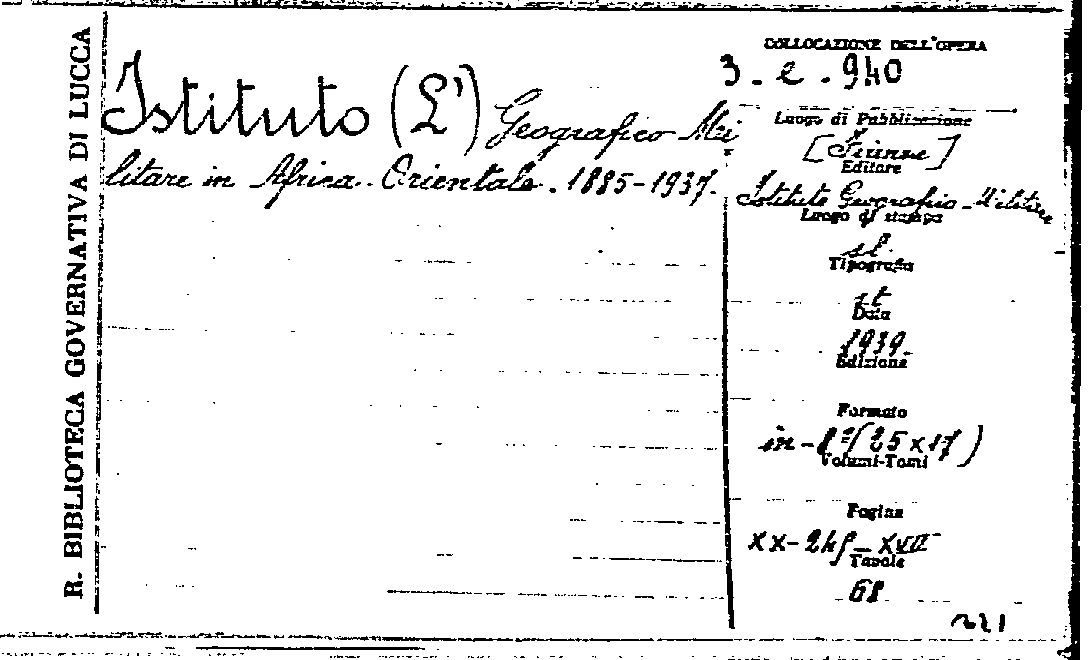 R. BIBLIOTECA GOVERNATIVA DI LUCCA
Istituto (L') Geografico Mi
litare in Africa Orientale. 1885-1937.
COLLOCAZIONE DELL'OPERA
3. e. 940
Luogo di Pubblicazione
[Firenze]
Editore
Istituto Geografico-Militare
Luogo di stampa
sl.
Tipografia
st
Data
1939
Edizione
Formato
in-8º(25x17)
Volumi-Tomi
Pagine
XX-245-XVII
Tavole
68
221